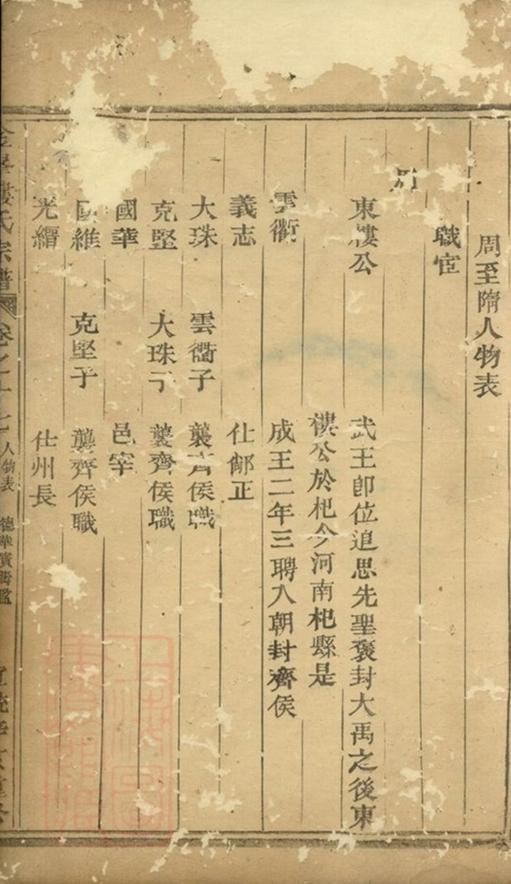 周至隋人物表
職官
周
東樓公 武王卽位追思先聖褒封大禹之後東
樓公於杞今河南杞縣是
雲衢 成王二年三聘入朝封齊侯
義志 仕鄉正
大珠 雲衢子 襲齊侯職
克堅 大珠子 襲齊侯職
國華 邑宰
國維 克堅子 襲齊侯職
光縉 仕州長
氏宗譜 卷之十七 人物表